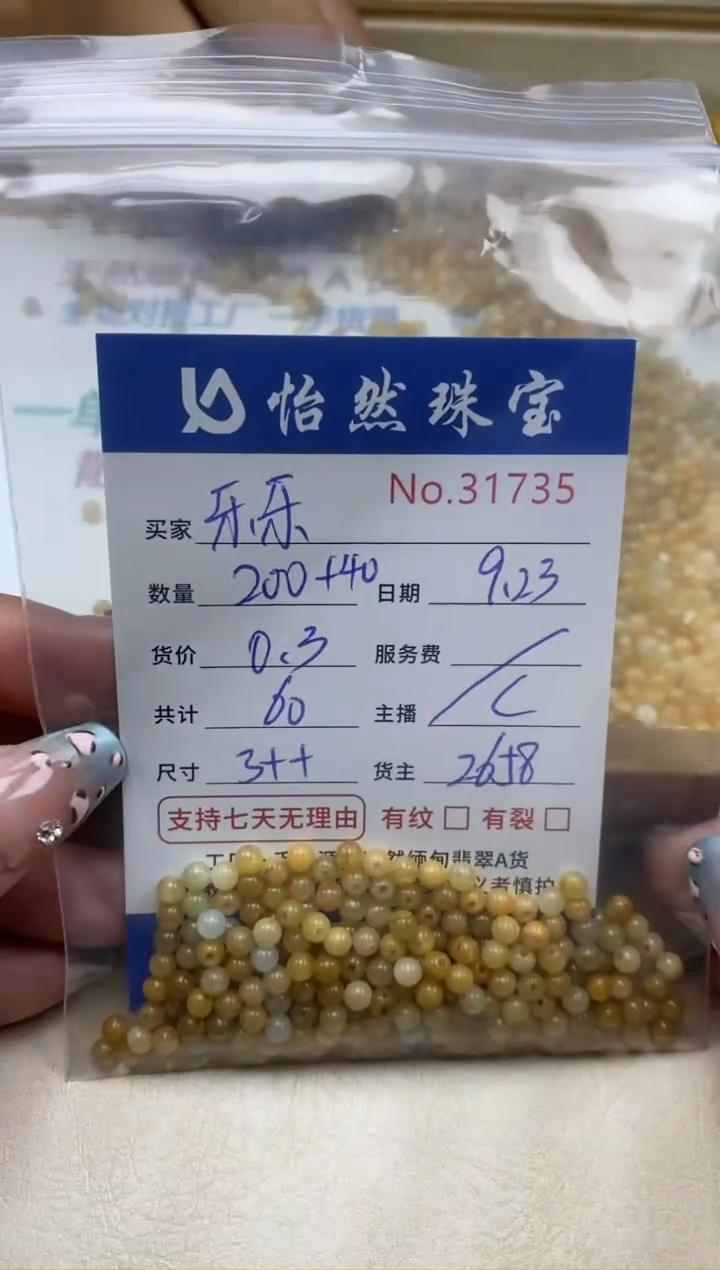 怡然珠宝
No.31735
买家 牙乐
数量 200+40 日期 9.23
货价 0.3 服务费 /
共计 60 主播 C
尺寸 3++ 货主 26+8
支持七天无理由 有纹 □ 有裂 □
然缅甸翡翠A货
者慎拍